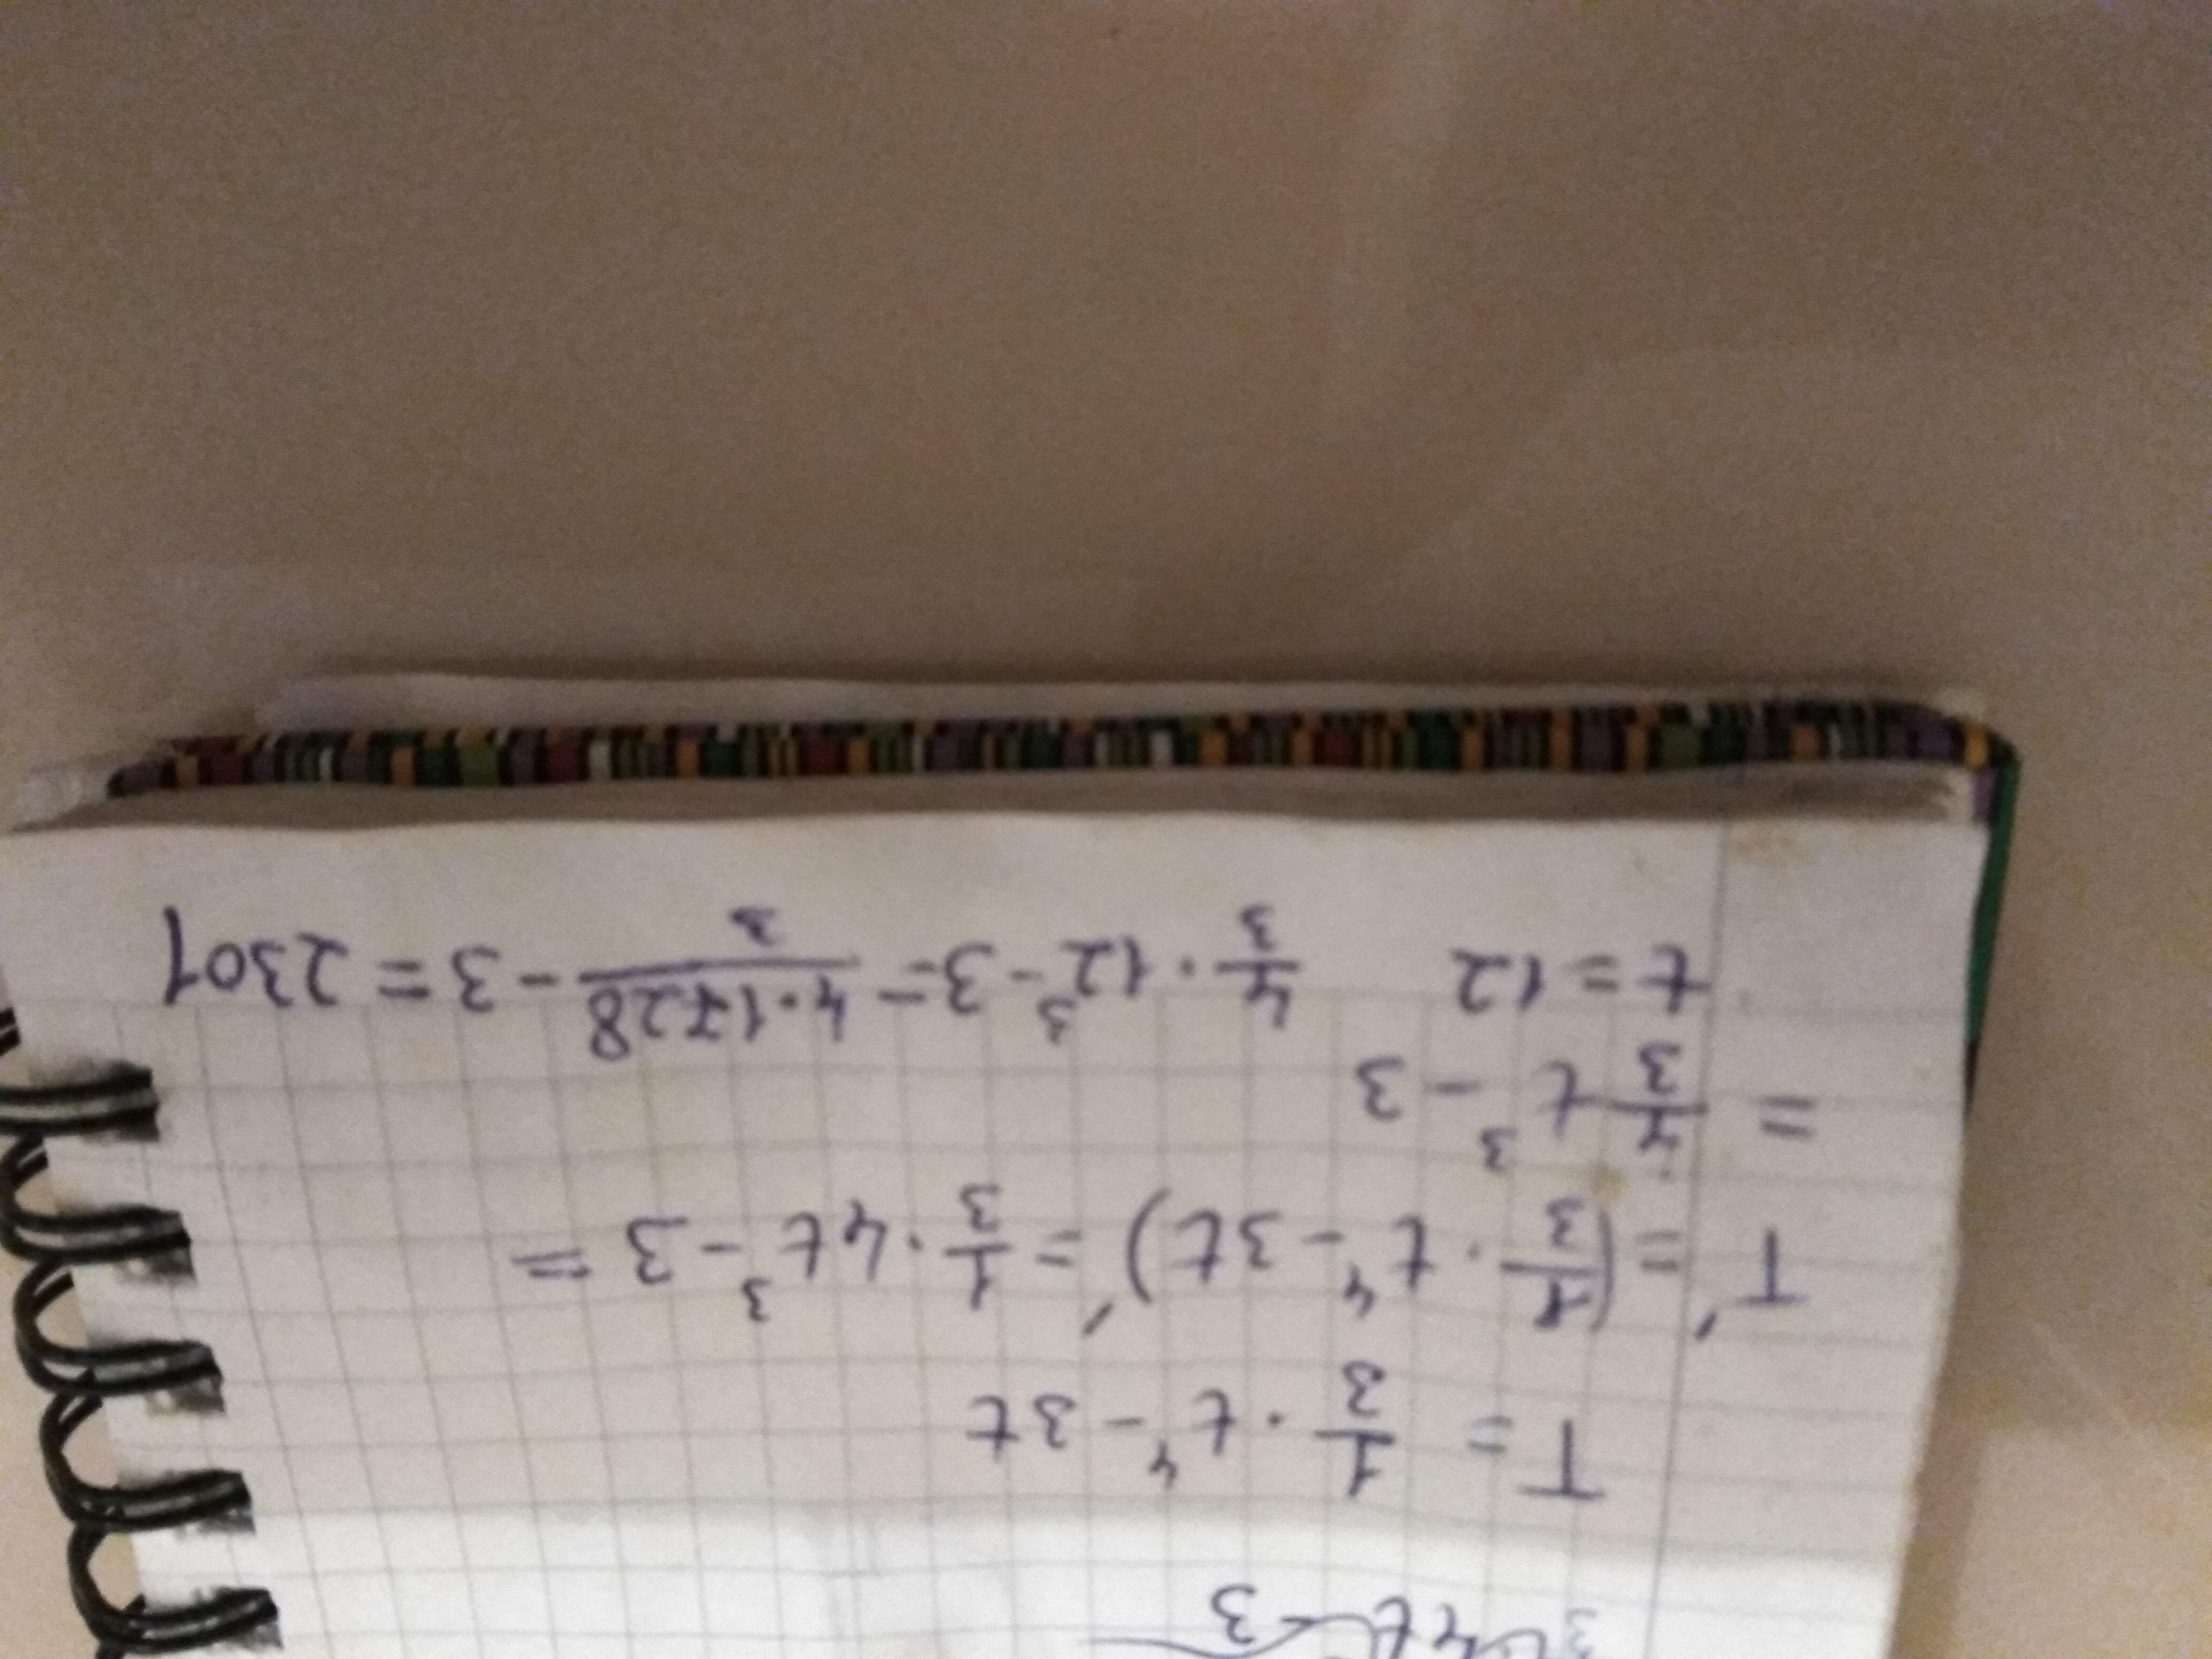 T = 1/3 · t⁴ - 3t
T' = (1/3 · t⁴ - 3t)' = 1/3 · 4t³ - 3 =
= 4/3 t³ - 3
t = 12 4/3 · 12³ - 3 = 4·1728/3 - 3 = 2301